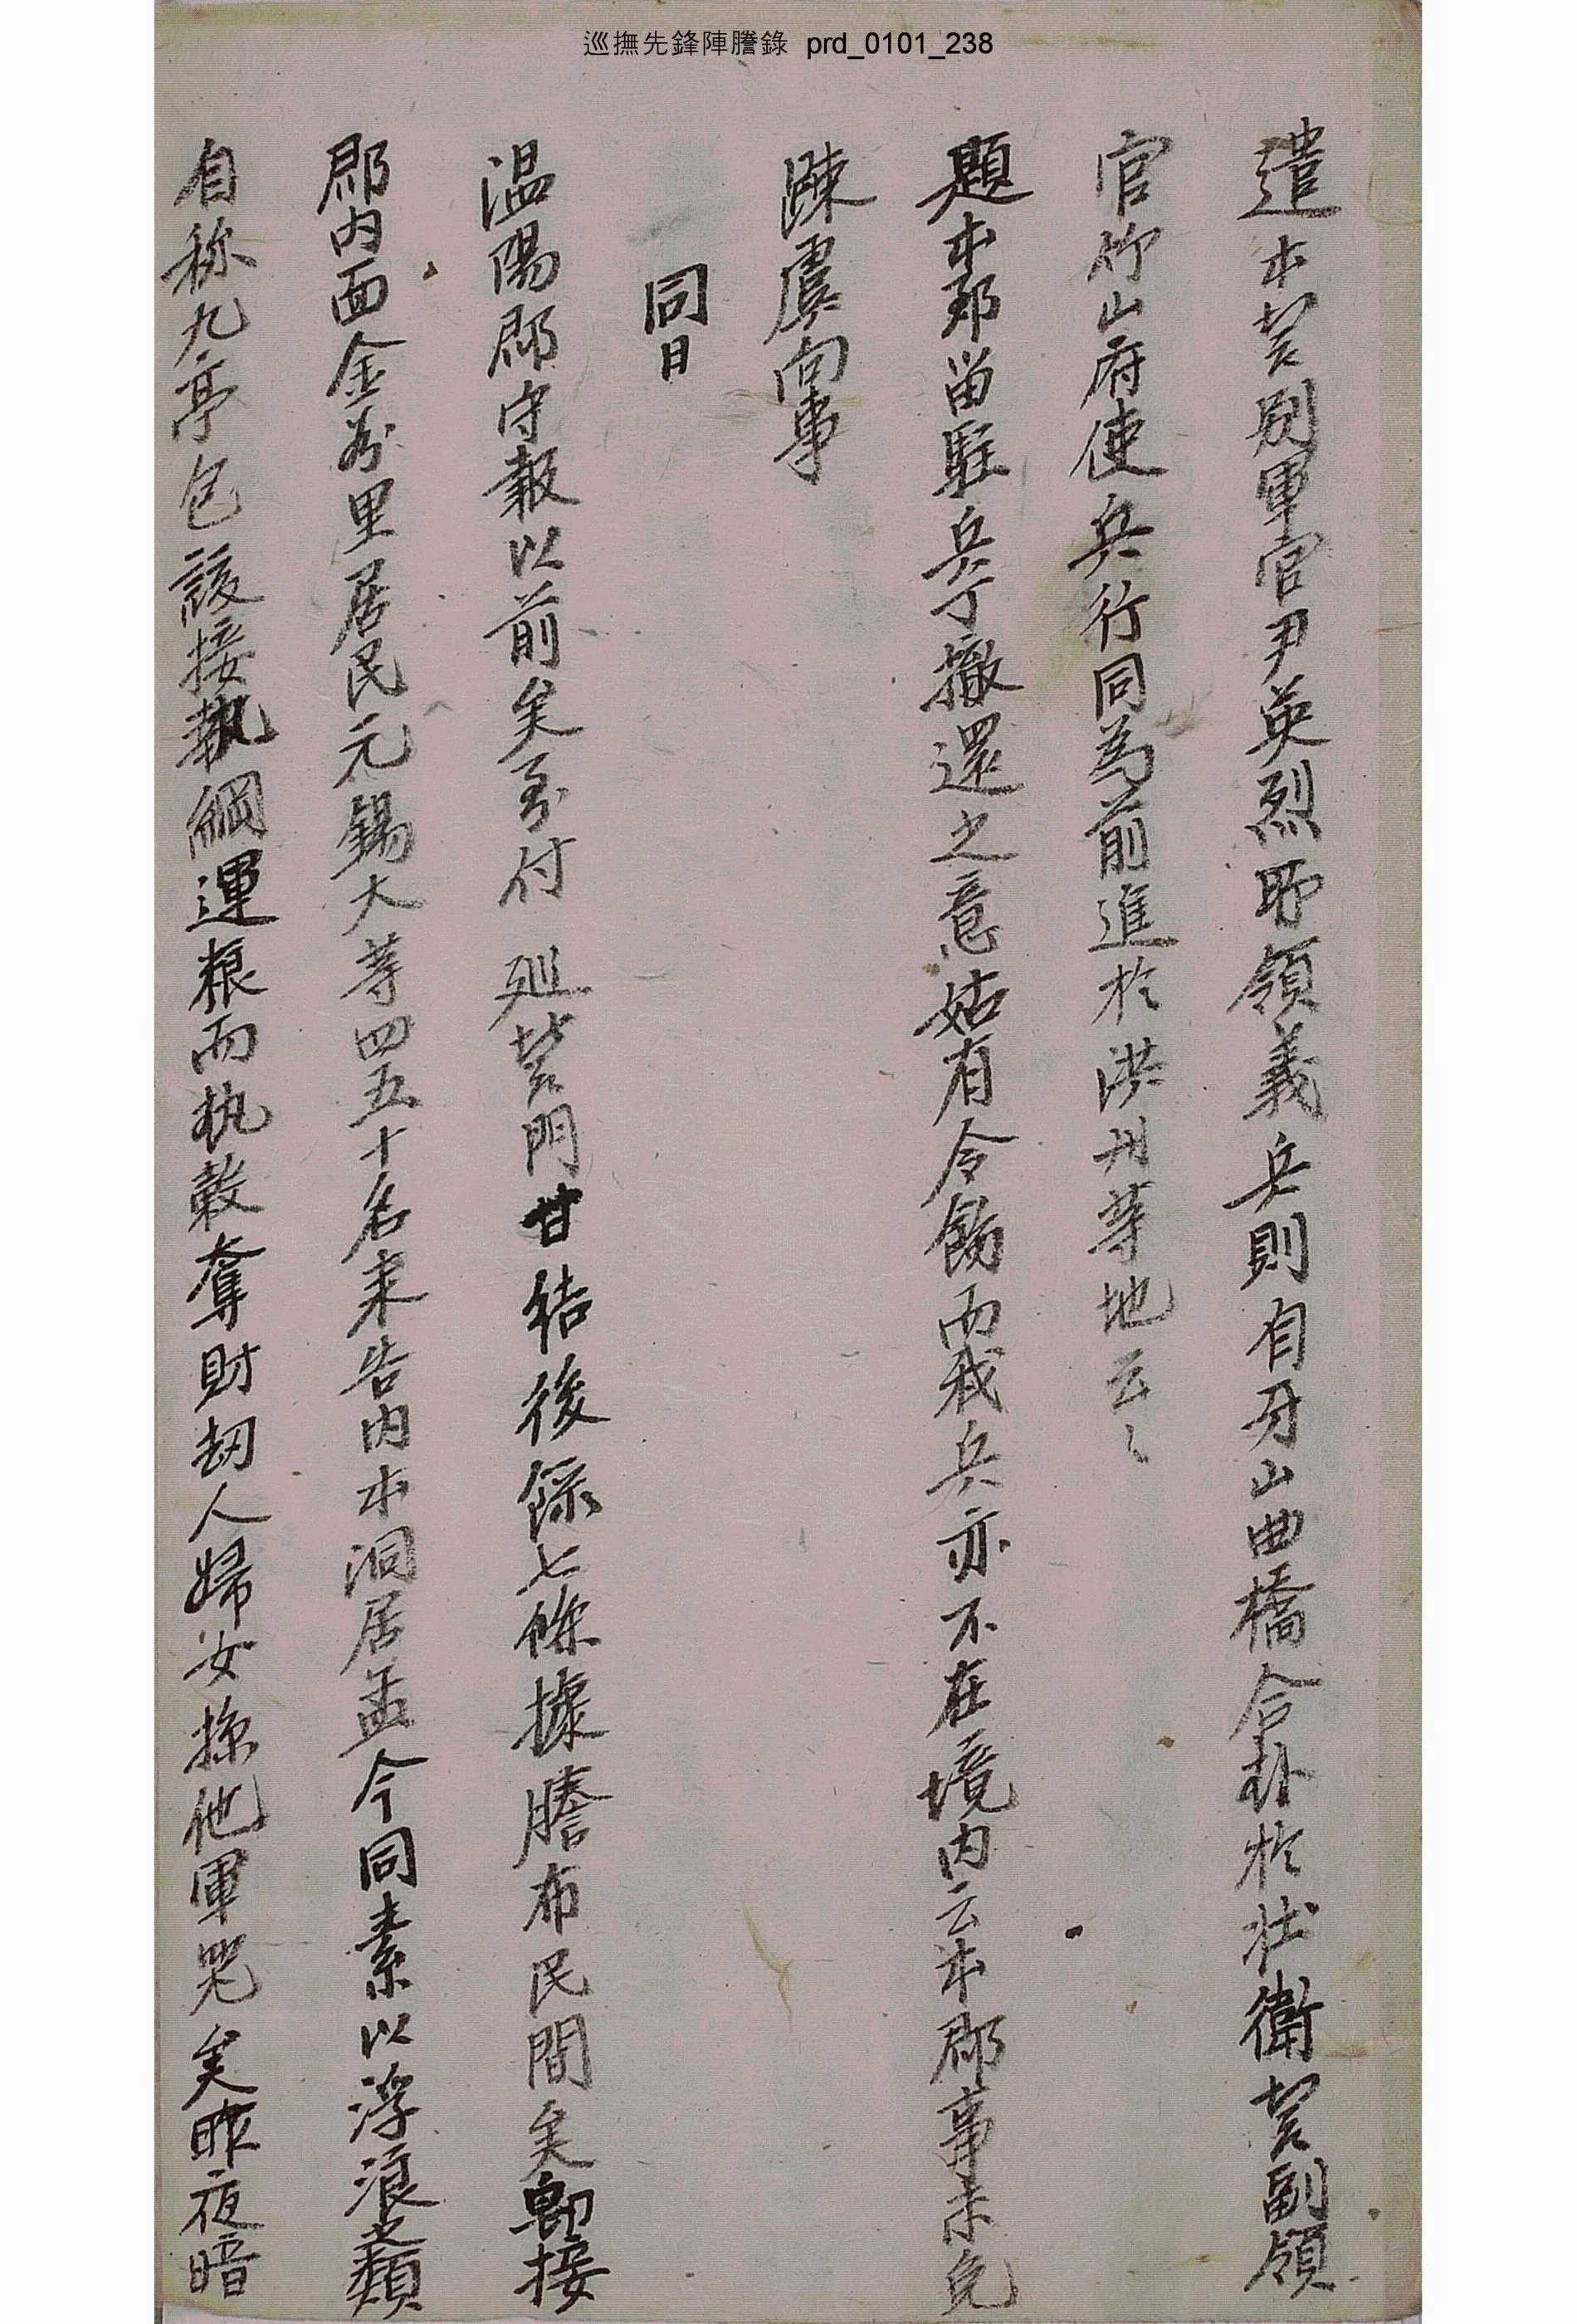 巡撫先鋒陣謄錄 prd_0101_238
遣本營別軍官尹英烈所領義兵則自牙山曲橋合扑於壯衛營副領
官竹山府使兵行同爲前進於洪州等地云〻
題本郡留駐兵丁撤還之意姑有令飭而我兵亦不在境內云本郡事未免
踈虞向事
同日
溫陽郡守報以前矣到付 廵營門甘結後係七條據謄布民間矣卽接
郡內面金谷里居民元錫大等四五十名來告內本洞居孟今同素以浮浪之類
自称九亭包該接執綱運粮而执穀奪財劫人婦女掠他軍
矣昨夜暗